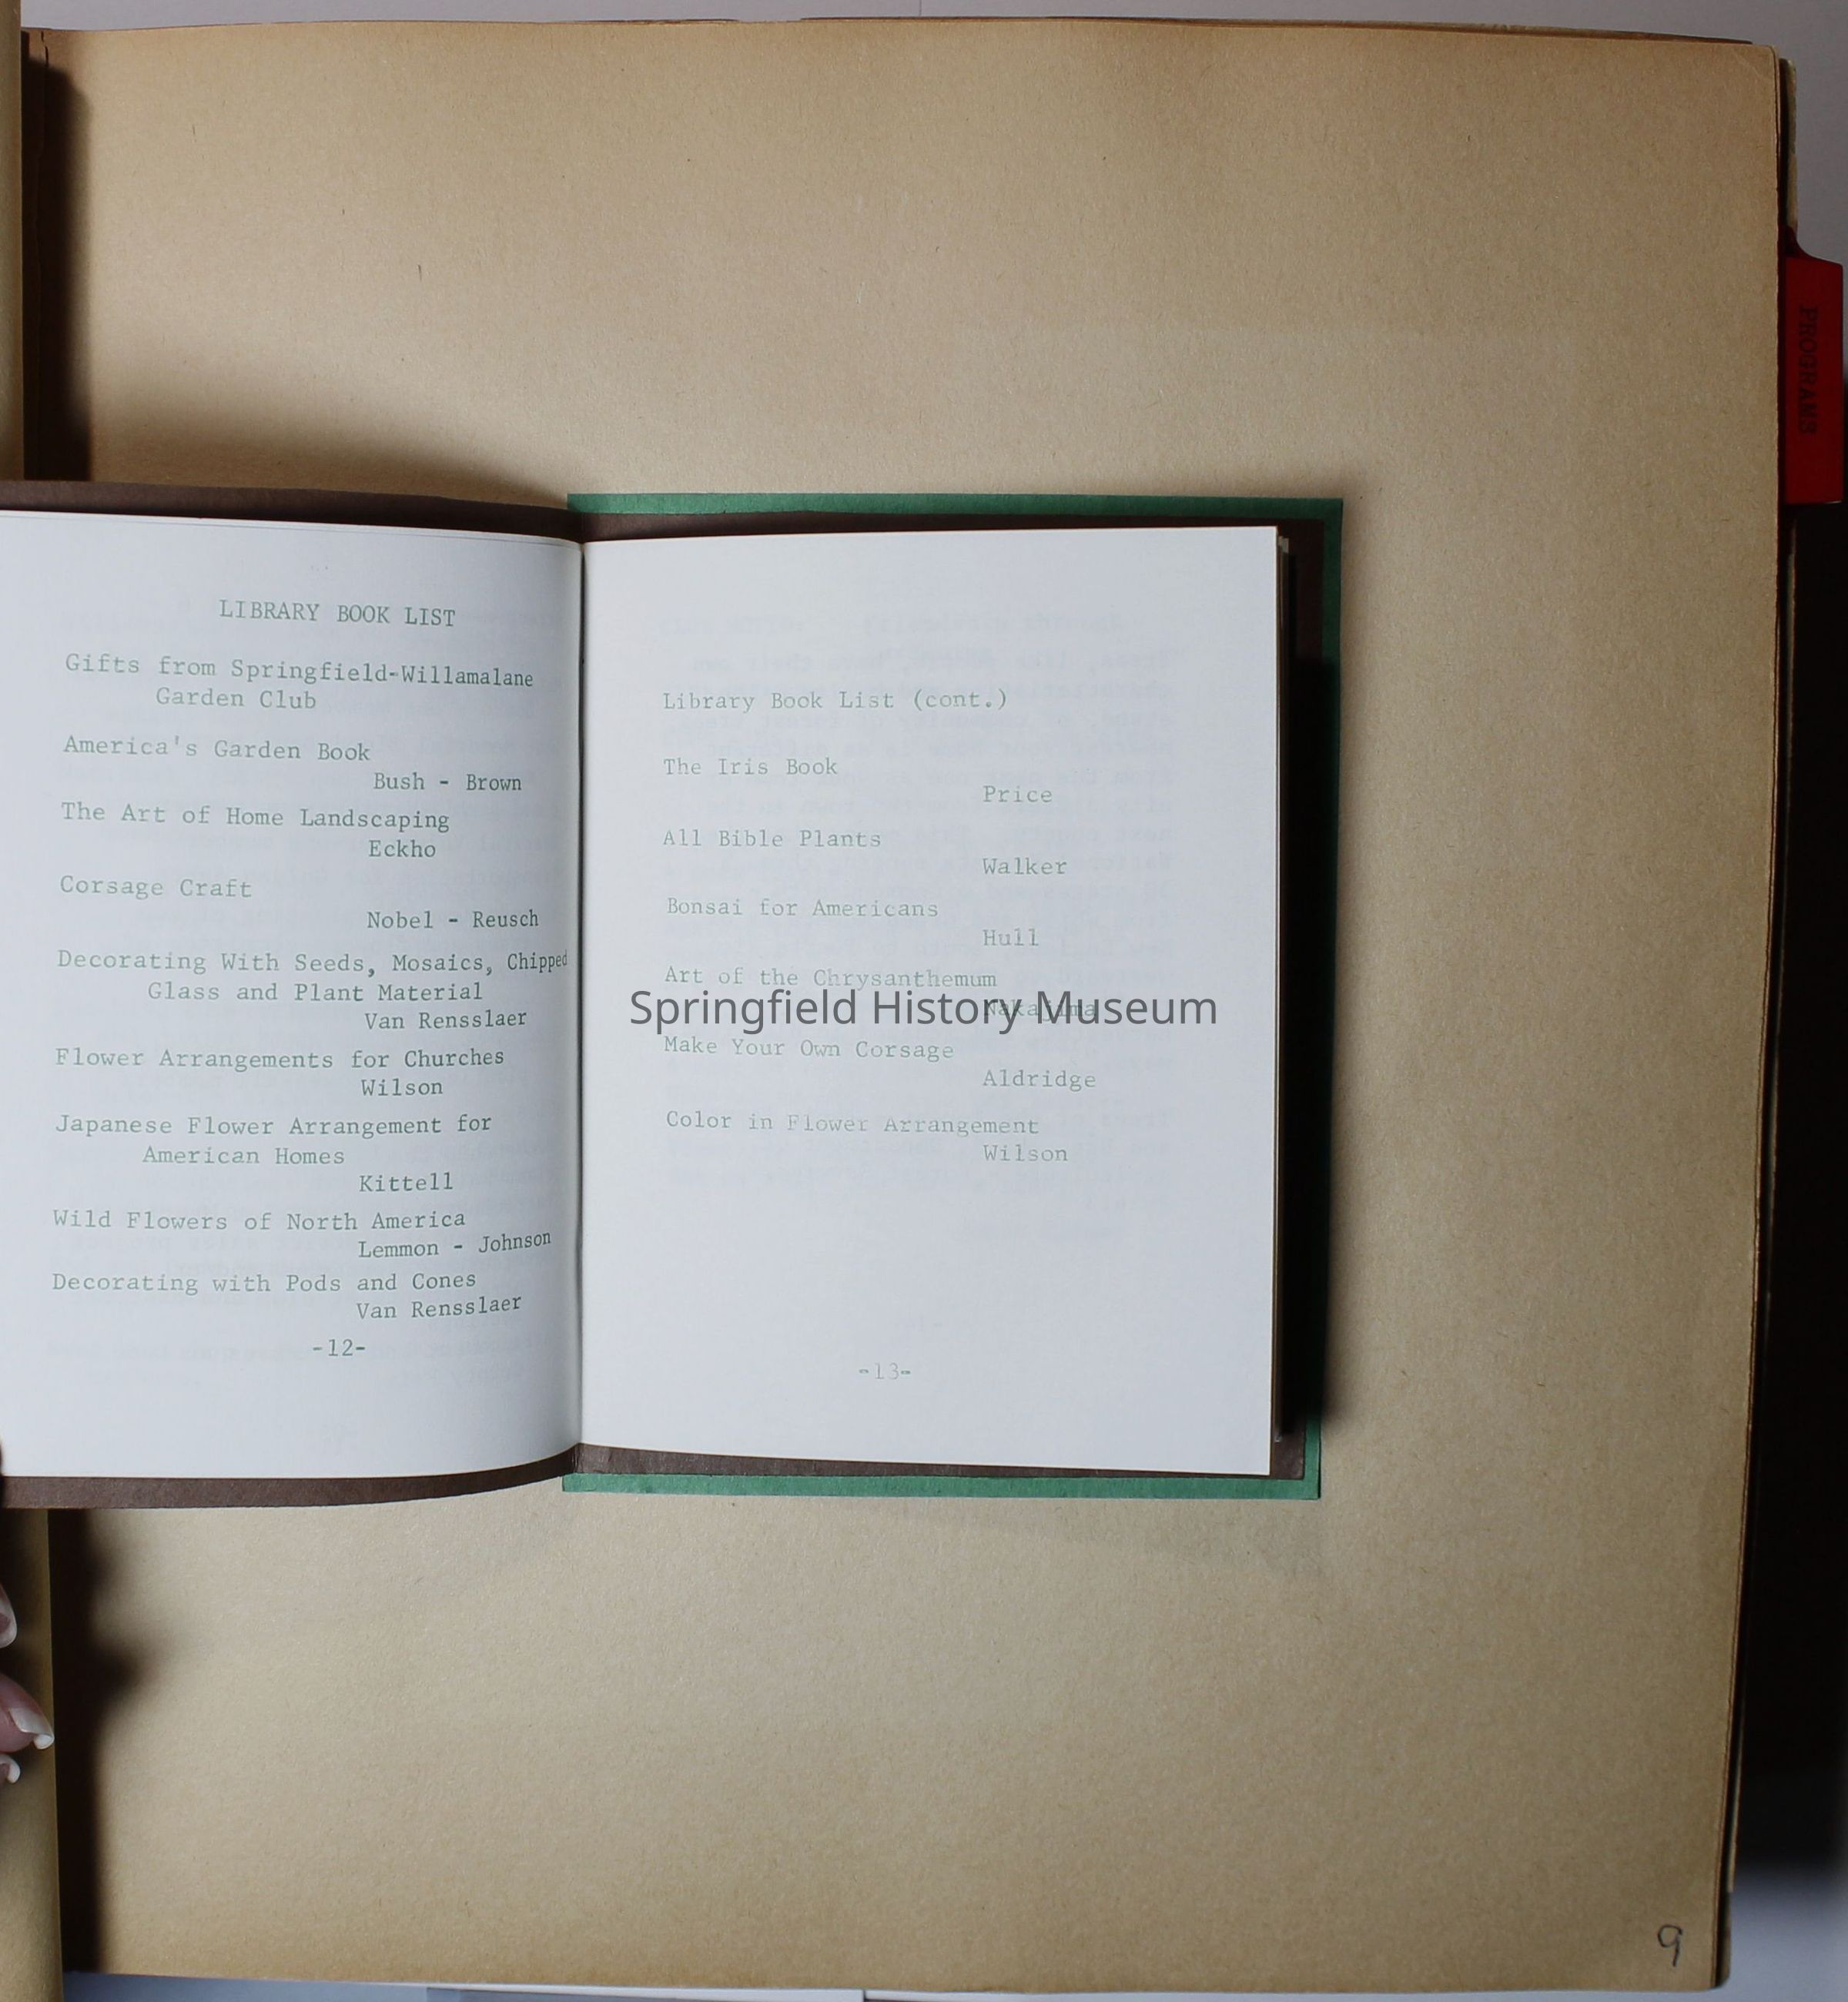 LIBRARY BOOK LIST
Gifts from Springfield-Willamalane
Garden Club
America's Garden Book
Bush - Brown
The Art of Home Landscaping
Eckho
Corsage Craft
Nobel - Reusch
Decorating With Seeds, Mosaics, Chipped
Glass and Plant Material
Van Rensslaer
Flower Arrangements for Churches
Wilson
Japanese Flower Arrangement for
American Homes
Kittell
Wild Flowers of North America
Lemmon - Johnson
Decorating with Pods and Cones
Van Rensslaer
-12-
Library Book List (cont.)
The Iris Book
Price
All Bible Plants
Walker
Bonsai for Americans
Hull
Art of the Chrysanthemum
Nakajima
Make Your Own Corsage
Aldridge
Color in Flower Arrangement
Wilson
-13-
Springfield History Museum
PROGRAMS
9